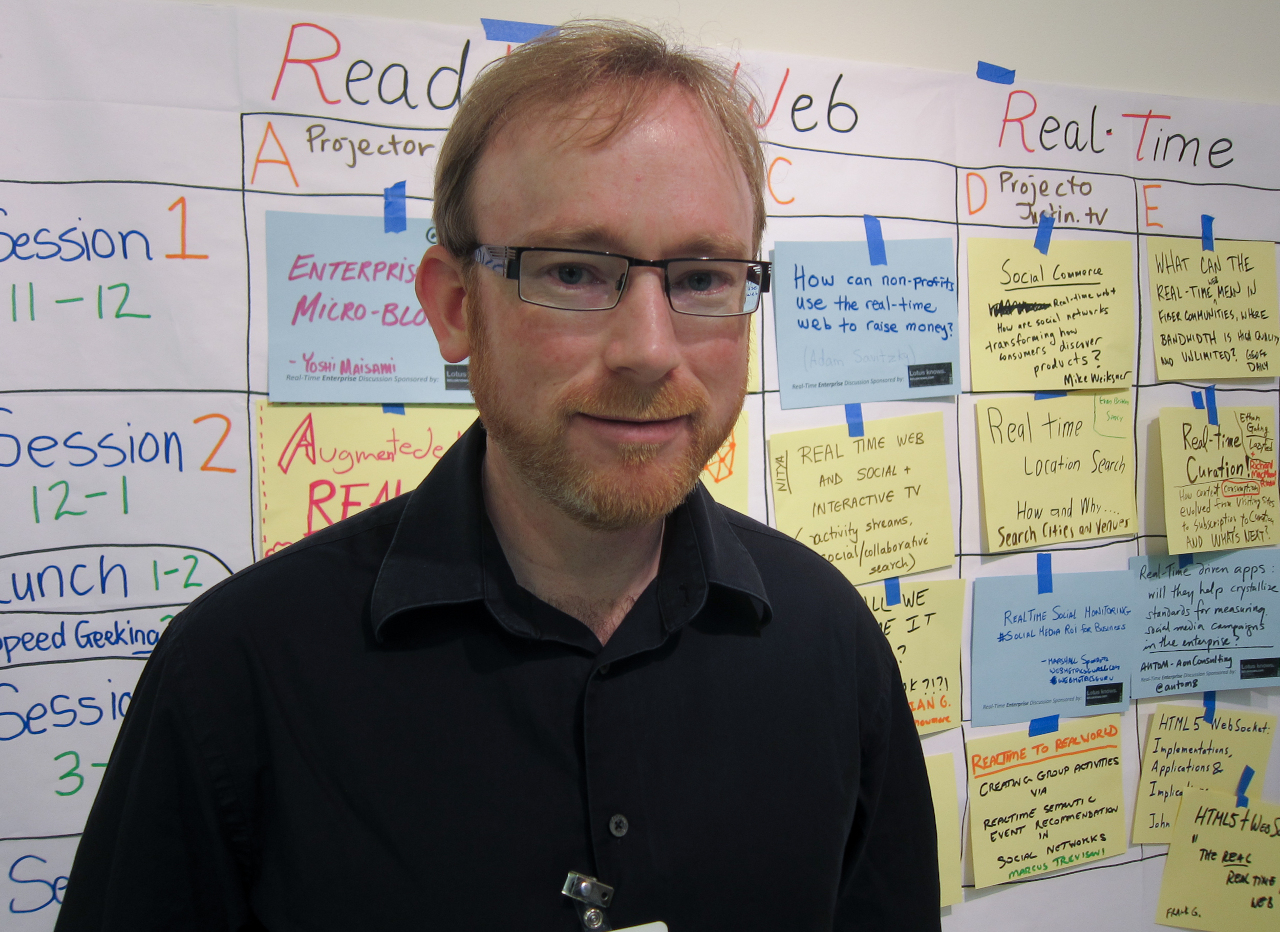 Read Web Real-Time
A Projector
C
D Projecto
Justin.tv
E
Session 1
11-12
ENTERPRIS
MICRO-BLO
- YOSHI MAISAMI
Real-Time Enterprise Discussion Sponsored by:
How can non-profits
use the real-time
web to raise money?
(Adam Savitzky)
Real-Time Enterprise Discussion Sponsored by:
Lotus knows.
Social Commerce
Real-time web +
How are social networks
transforming how
consumers discover
products?
Mike Weiksner
WHAT CAN THE
REAL-TIME WEB MEAN IN
FIBER COMMUNITIES, WHERE
BANDWIDTH IS HIGH QUALITY
AND UNLIMITED? GEOFF
DAILY
Session 2
12-1
Augmented
REAL
NITYA
REAL TIME WEB
AND SOCIAL +
INTERACTIVE TV
(activity streams,
social/collaborative
search)
Real time
Location Search
How and Why....
Search Cities and Venues
Real-time
Curation!
How content consumption
evolved from visiting sites
to subscription to curation
AND WHAT'S NEXT?
Ethan
+
Richard
Lunch 1-2
Speed Geeking
ALL WE
IT
?
K?!?!
IAN G.
REALTIME SOCIAL MONITORING
#SOCIAL MEDIA ROI FOR BUSINESS
- MARSHALL
Real-Time Enterprise Discussion Sponsored by:
Lotus knows.
Real-Time driven apps:
will they help crystallize
standards for measuring
social media campaigns
in the enterprise?
ANTOM - AonConsulting
Real-Time Enterprise Discussion Sponsored by:
Lotus knows.
@autom8
Sessio
3-
REALTIME TO REALWORLD
CREATING GROUP ACTIVITIES
VIA
REALTIME SEMANTIC
EVENT RECOMENDATION
IN
SOCIAL NETWORKS
MARCUS TREVISANI
HTML5 WebSocket:
Implementations,
Applications &
Implic
John
Se
HTML5 + WEBS
"THE REAL
REAL TIME
WEB
FRANK G.